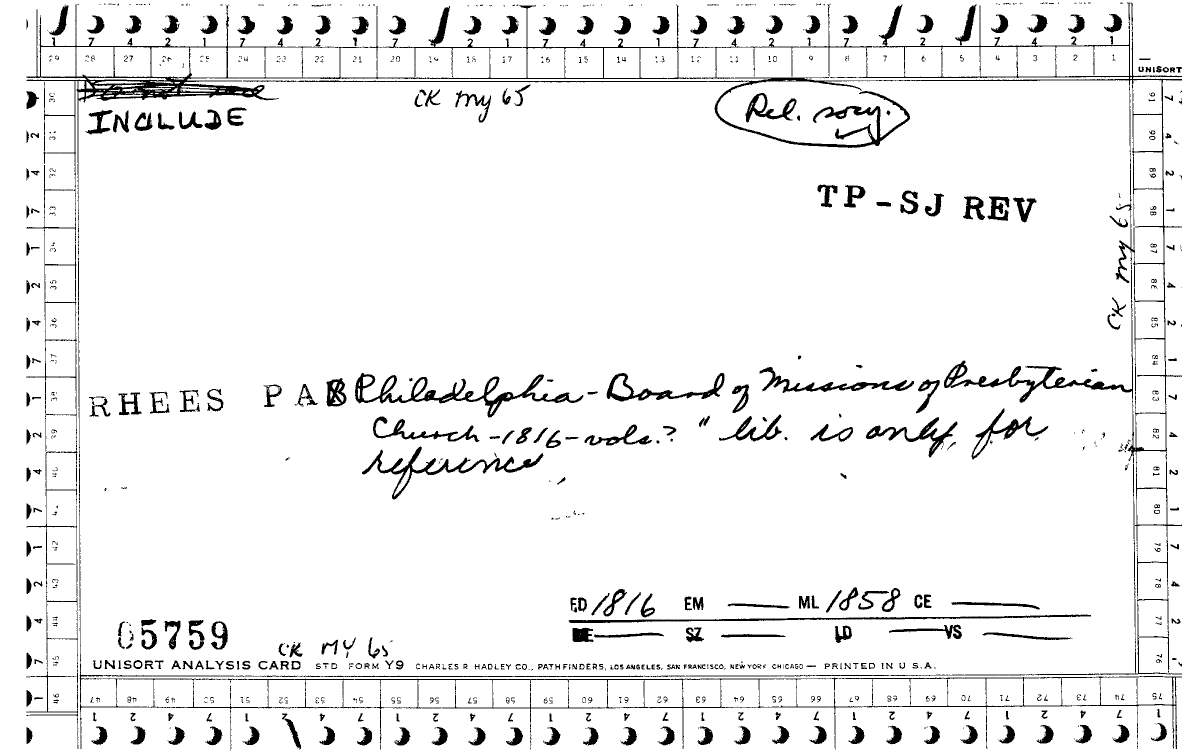 7 4 2 1 7 4 2 1 7 4 2 1 7 4 2 1 7 4 2 1 7 4 2 1 7 4 2 1
29 28 27 26 25 24 23 22 21 20 19 18 17 16 15 14 13 12 11 10 9 8 7 6 5 4 3 2 1
UNISORT
CK my 65
INCLUDE
Rel. socy.
TP-SJ REV
CK my 65
RHEES PA Philadelphia - Board of Missions of Presbyterian
Church - 1816 - vols.? " lib. is only for
reference
ED 1816 EM — ML 1858 CE —
SZ — LD — VS —
05759 CK MY 65
UNISORT ANALYSIS CARD STD FORM Y9 CHARLES R HADLEY CO., PATHFINDERS, LOS ANGELES, SAN FRANCISCO, NEW YORK CHICAGO — PRINTED IN U S A.
46 47 48 49 50 51 52 53 54 55 56 57 58 59 60 61 62 63 64 65 66 67 68 69 70 71 72 73 74 75
1 2 4 7 1 2 4 7 1 2 4 7 1 2 4 7 1 2 4 7 1 2 4 7 1 2 4 7